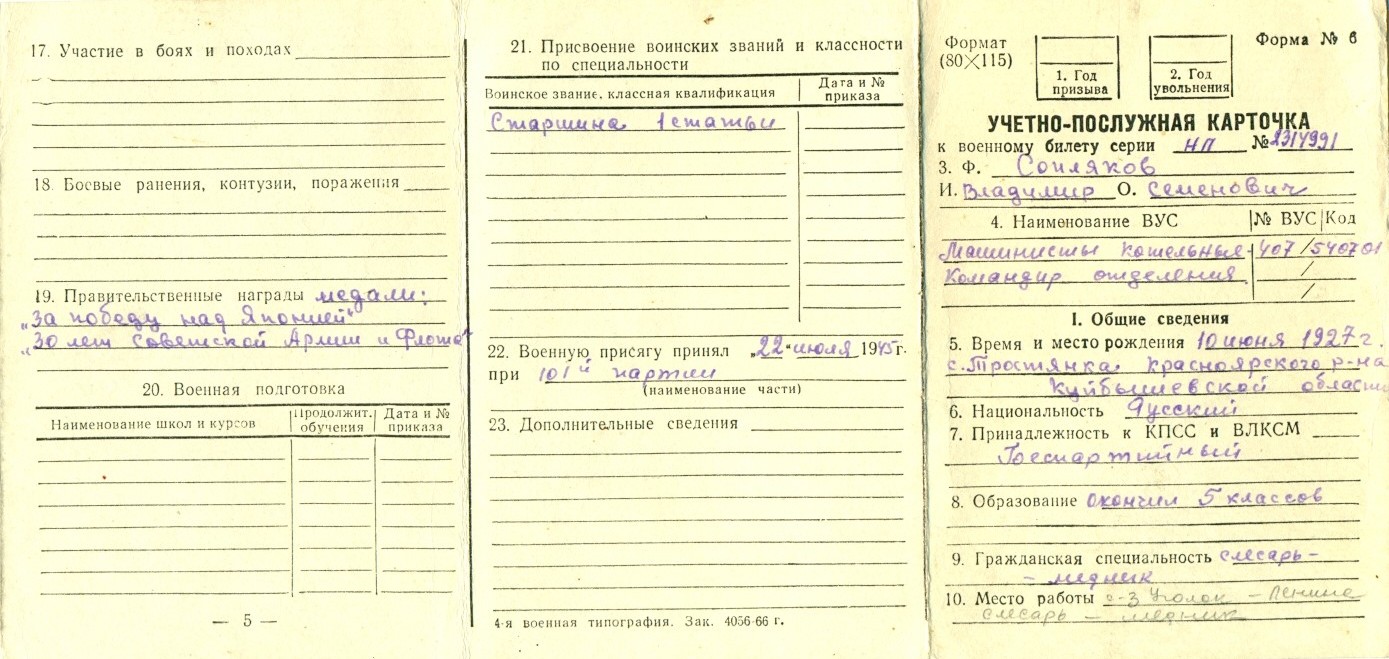 17. Участие в боях и походах
18. Боевые ранения, контузии, поражения
19. Правительственные награды медали:
„За победу над Японией“
„30 лет Советской Армии и Флота“
20. Военная подготовка
Наименование школ и курсов
Продолжит. обучения
Дата и № приказа
— 5 —
21. Присвоение воинских званий и классности
по специальности
Воинское звание, классная квалификация
Дата и № приказа
Старшина 1 статьи
22. Военную присягу принял „22“ июля 1945 г.
при 101й партии
(наименование части)
23. Дополнительные сведения
4-я военная типография. Зак. 4056-66 г.
Формат
(80×115)
1. Год
призыва
2. Год
увольнения
Форма № 6
УЧЕТНО-ПОСЛУЖНАЯ КАРТОЧКА
к военному билету серии НП № 2314991
3. Ф. Сопляков
И. Владимир О. Семенович
4. Наименование ВУС № ВУС Код
Машинисты котельные 407/540701
Командир отделения /
/
I. Общие сведения
5. Время и место рождения 10 июня 1927 г.
с. Тростянка Красноярского р-на
Куйбышевской области
6. Национальность Русский
7. Принадлежность к КПСС и ВЛКСМ
Беспартийный
8. Образование окончил 5 классов
9. Гражданская специальность слесарь-
- медник
10. Место работы с-з Уголок - Ленина
слесарь - медник